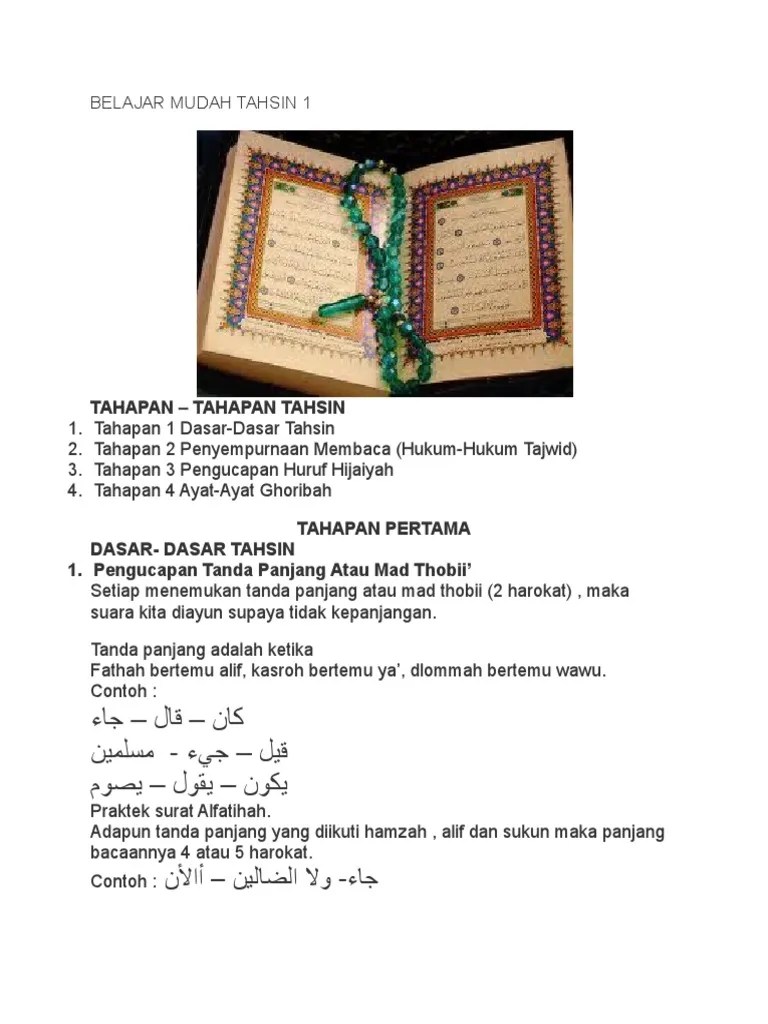 BELAJAR MUDAH TAHSIN 1
TAHAPAN – TAHAPAN TAHSIN
1. Tahapan 1 Dasar-Dasar Tahsin
2. Tahapan 2 Penyempurnaan Membaca (Hukum-Hukum Tajwid)
3. Tahapan 3 Pengucapan Huruf Hijaiyah
4. Tahapan 4 Ayat-Ayat Ghoribah
TAHAPAN PERTAMA
DASAR- DASAR TAHSIN
1. Pengucapan Tanda Panjang Atau Mad Thobii’
Setiap menemukan tanda panjang atau mad thobii (2 harokat) , maka
suara kita diayun supaya tidak kepanjangan.
Tanda panjang adalah ketika
Fathah bertemu alif, kasroh bertemu ya’, dlommah bertemu wawu.
Contoh :
كان – قال – جاء
قيل – جيء - مسلمين
يكون – يقول – يصوم
Praktek surat Alfatihah.
Adapun tanda panjang yang diikuti hamzah , alif dan sukun maka panjang
bacaannya 4 atau 5 harokat.
Contoh : جاء- ولا الضالين – أالأن